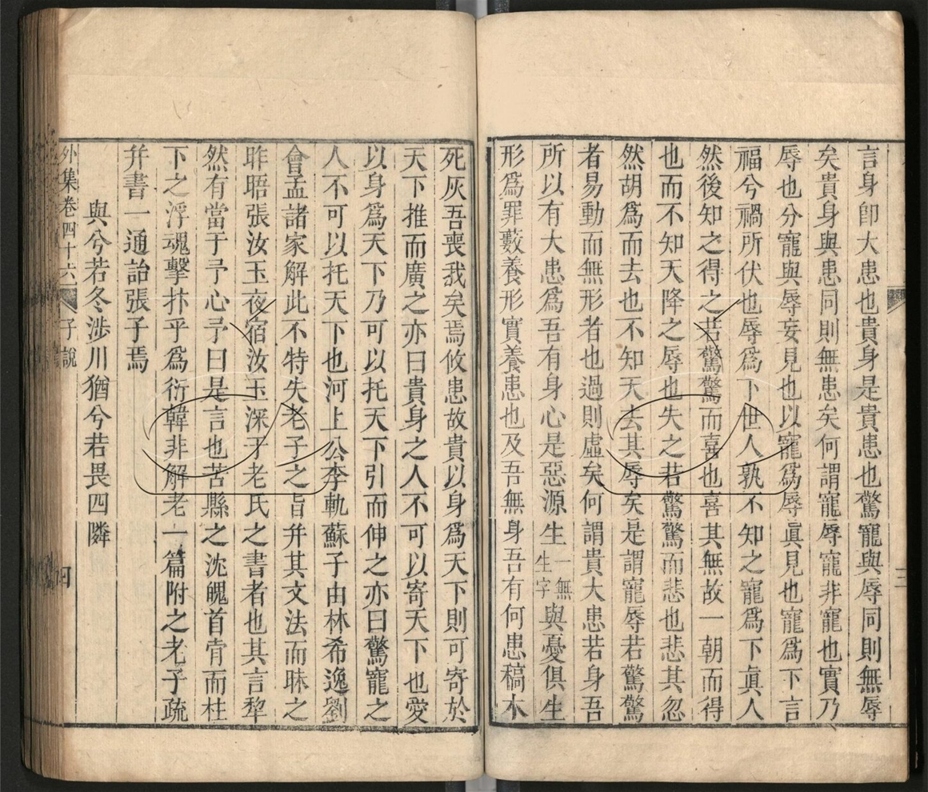 言身卽大患也貴身是貴患也驚寵與辱同則無辱
矣貴身與患同則無患矣何謂寵辱寵非寵也實乃
辱也分寵與辱妄見也以寵爲辱眞見也寵爲下言
福兮禍所伏也辱爲下世人孰不知之寵爲下眞人
然後知之得之若驚驚而喜也喜其無故一朝而得
也而不知天降之辱也失之若驚驚而悲也悲其忽
然胡爲而去也不知天去其辱矣是謂寵辱若驚驚
者易動而無形者也過則虛矣何謂貴大患若身吾
所以有大患爲吾有身心是惡源生一無生字與憂俱生
形爲罪藪養形實養患也及吾無身吾有何患稿木
三
死灰吾喪我矣焉攸患故貴以身爲天下則可寄於
天下推而廣之亦曰貴身之人不可以寄天下也愛
以身爲天下乃可以托天下引而伸之亦曰驚寵之
人不可以托天下也河上公李軌蘇子由林希逸劉
會孟諸家解此不特失老子之旨幷其文法而昧之
昨晤張汝玉夜宿汝玉深于老氏之書者也其言犂
然有當于予心予曰是言也苦縣之沈魄首肯而柱
下之浮魂擊抃乎爲衍韓非解老一篇附之老子疏
幷書一通詒張子焉
與兮若冬涉川猶兮若畏四隣
外集卷四十六 子說 四